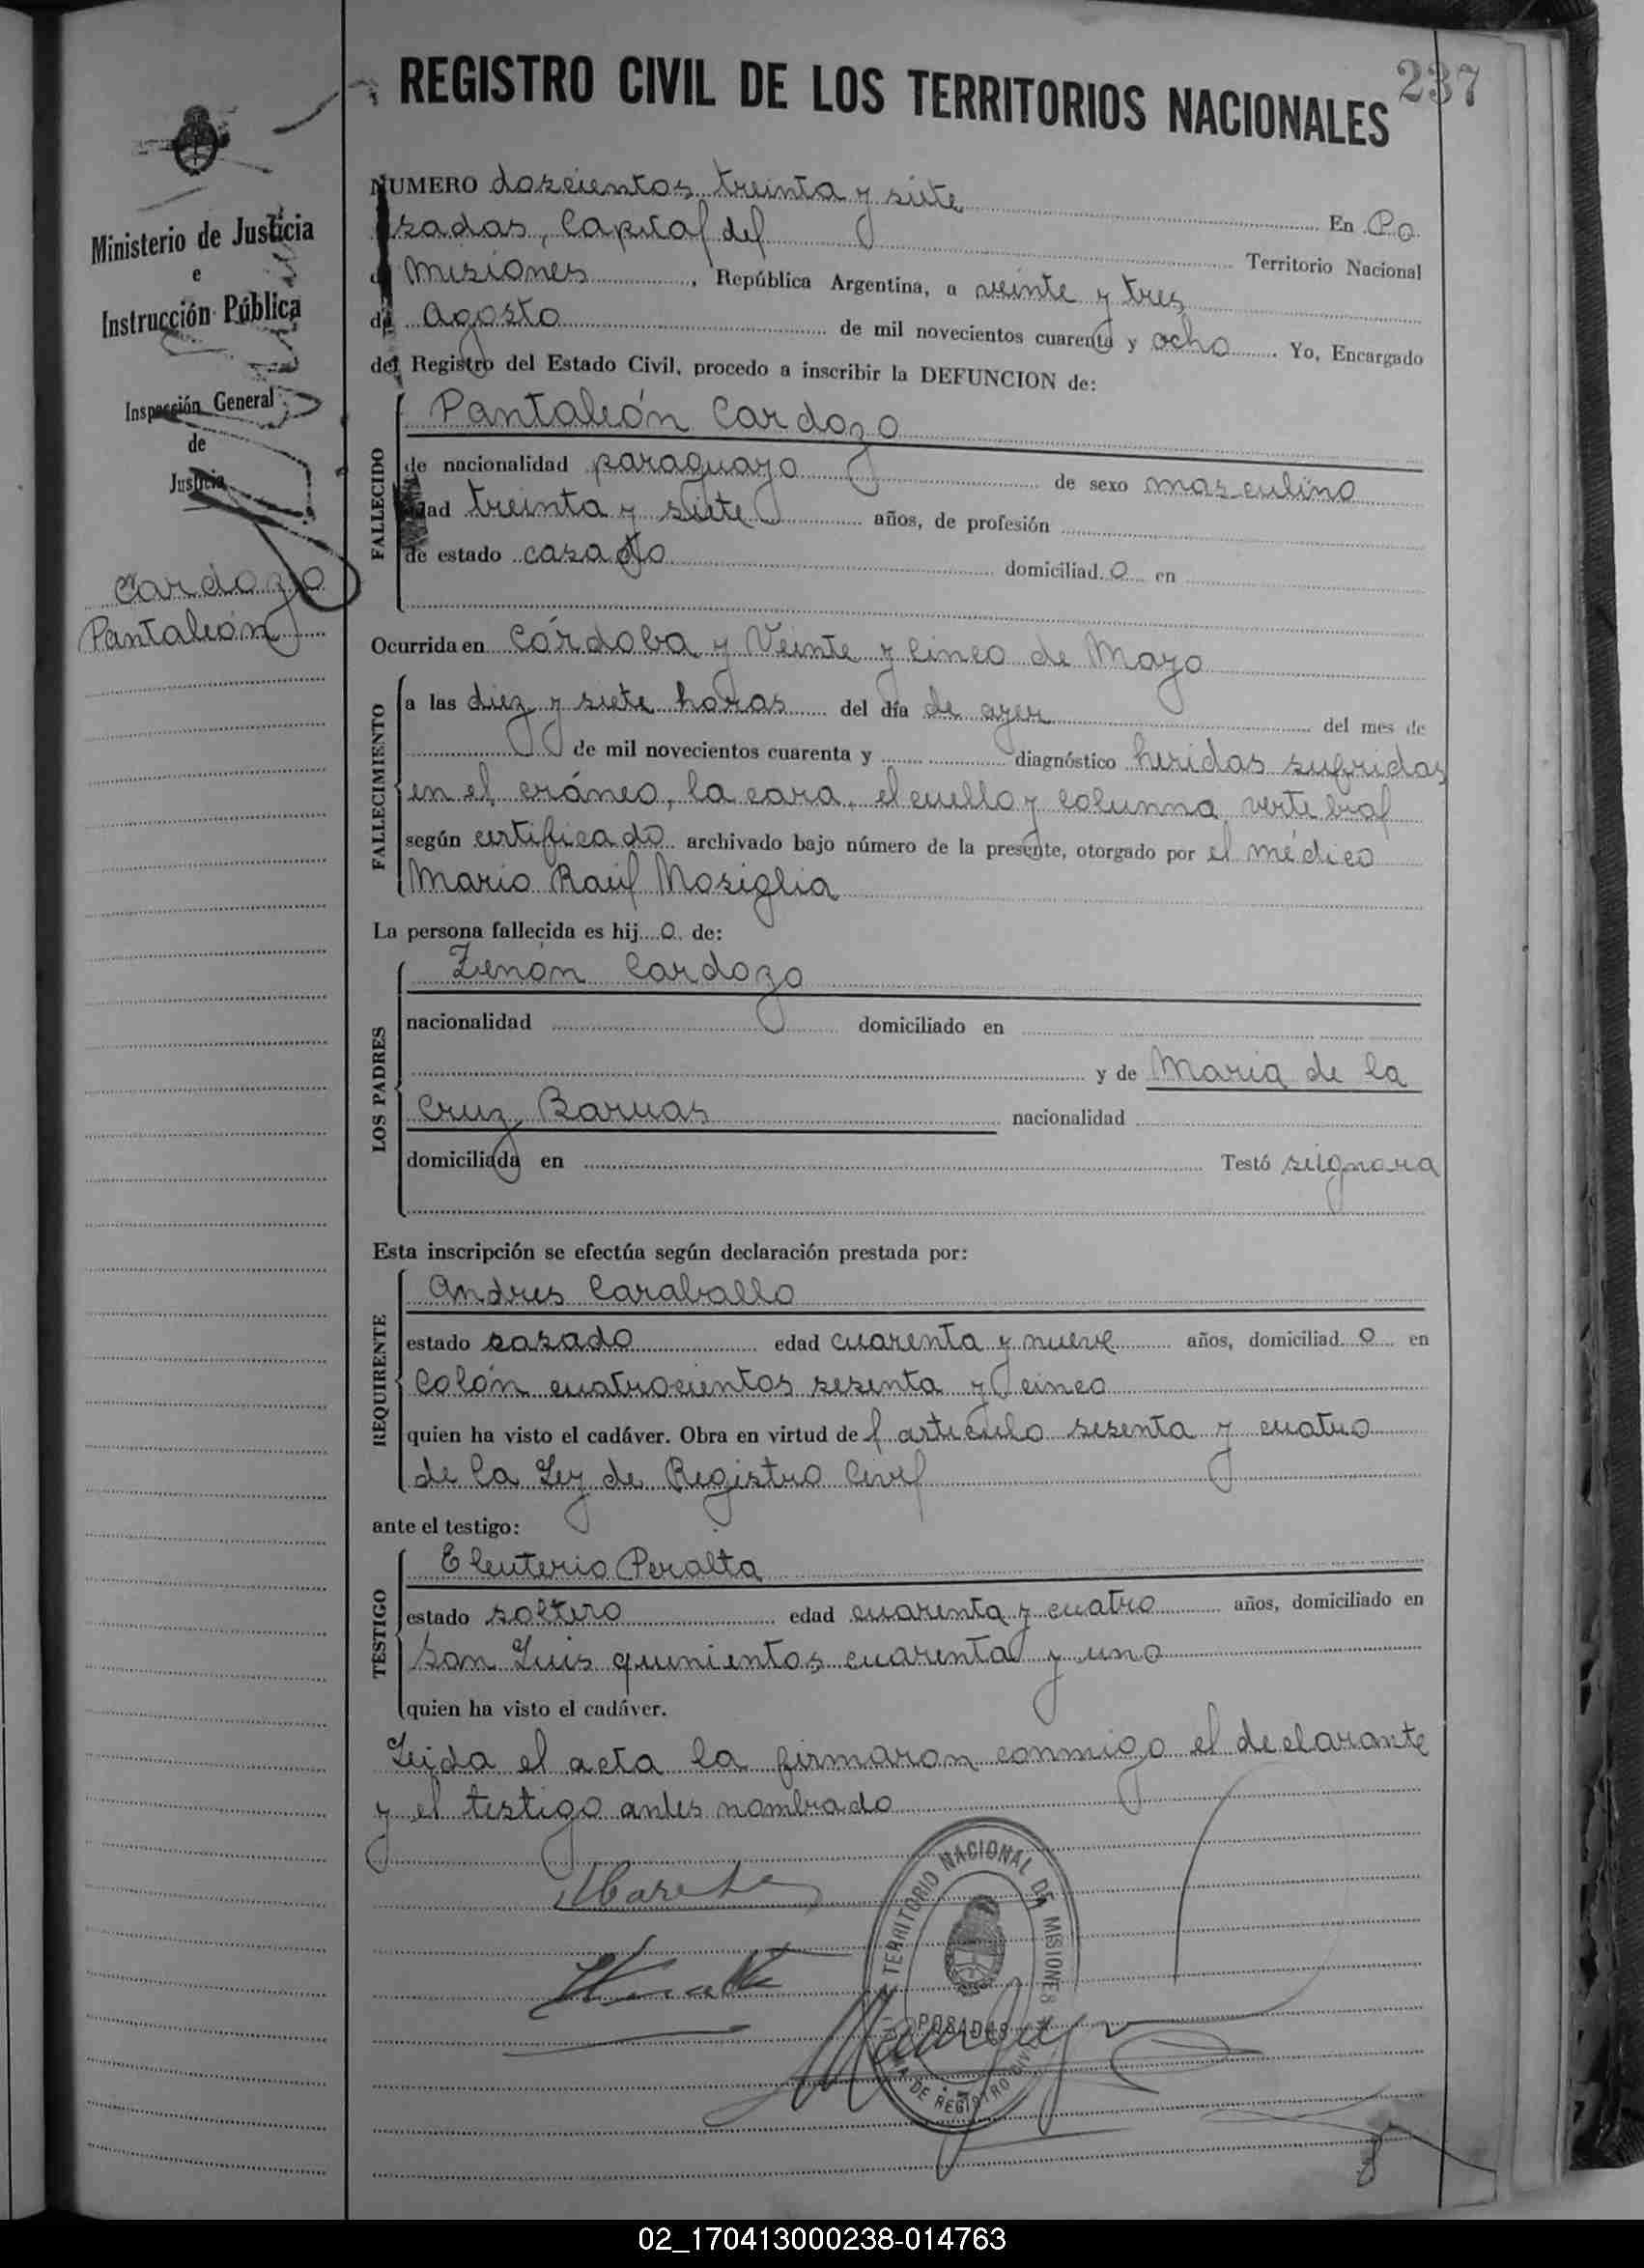 237
REGISTRO CIVIL DE LOS TERRITORIOS NACIONALES
Ministerio de Justicia
e
Instrucción Pública
Inspección General
de
Justicia
Cardozo
Pantaleón
NUMERO doscientos treinta y siete En Po
sadas, Capital del Territorio Nacional
de Misiones, República Argentina, a veinte y tres
de Agosto de mil novecientos cuarenta y ocho Yo, Encargado
del Registro del Estado Civil, procedo a inscribir la DEFUNCION de:
FALLECIDO
Pantaleón Cardozo
de nacionalidad paraguayo de sexo masculino
edad treinta y siete años, de profesión
de estado casado domiciliad o en
Ocurrida en Córdoba y Veinte y cinco de Mayo
FALLECIMIENTO
a las diez y siete horas del día de ayer del mes de
de mil novecientos cuarenta y diagnóstico heridas sufridas
en el cráneo, la cara, el cuello y columna vertebral
según certificado archivado bajo número de la presente, otorgado por el médico
Mario Raúl Mosiglia
La persona fallecida es hij o de:
LOS PADRES
Zenón Cardozo
nacionalidad domiciliado en
y de Maria de la
Cruz Baruas nacionalidad
domiciliada en Testó se ignora
Esta inscripción se efectúa según declaración prestada por:
REQUIRENTE
Andres Caraballo
estado casado edad cuarenta y nueve años, domiciliad o en
Colón cuatrocientos sesenta y cinco
quien ha visto el cadáver. Obra en virtud de l articulo sesenta y cuatro
de la Ley de Registro Civil
ante el testigo:
TESTIGO
Eleuterio Peralta
estado soltero edad cuarenta y cuatro años, domiciliado en
San Luis quinientos cuarenta y uno
quien ha visto el cadáver.
Leida el acta la firmaron conmigo el declarante
y el testigo antes nombrado
TERRITORIO NACIONAL DE MISIONES
POSADAS
DE REGISTRO CIVIL
02_170413000238-014763